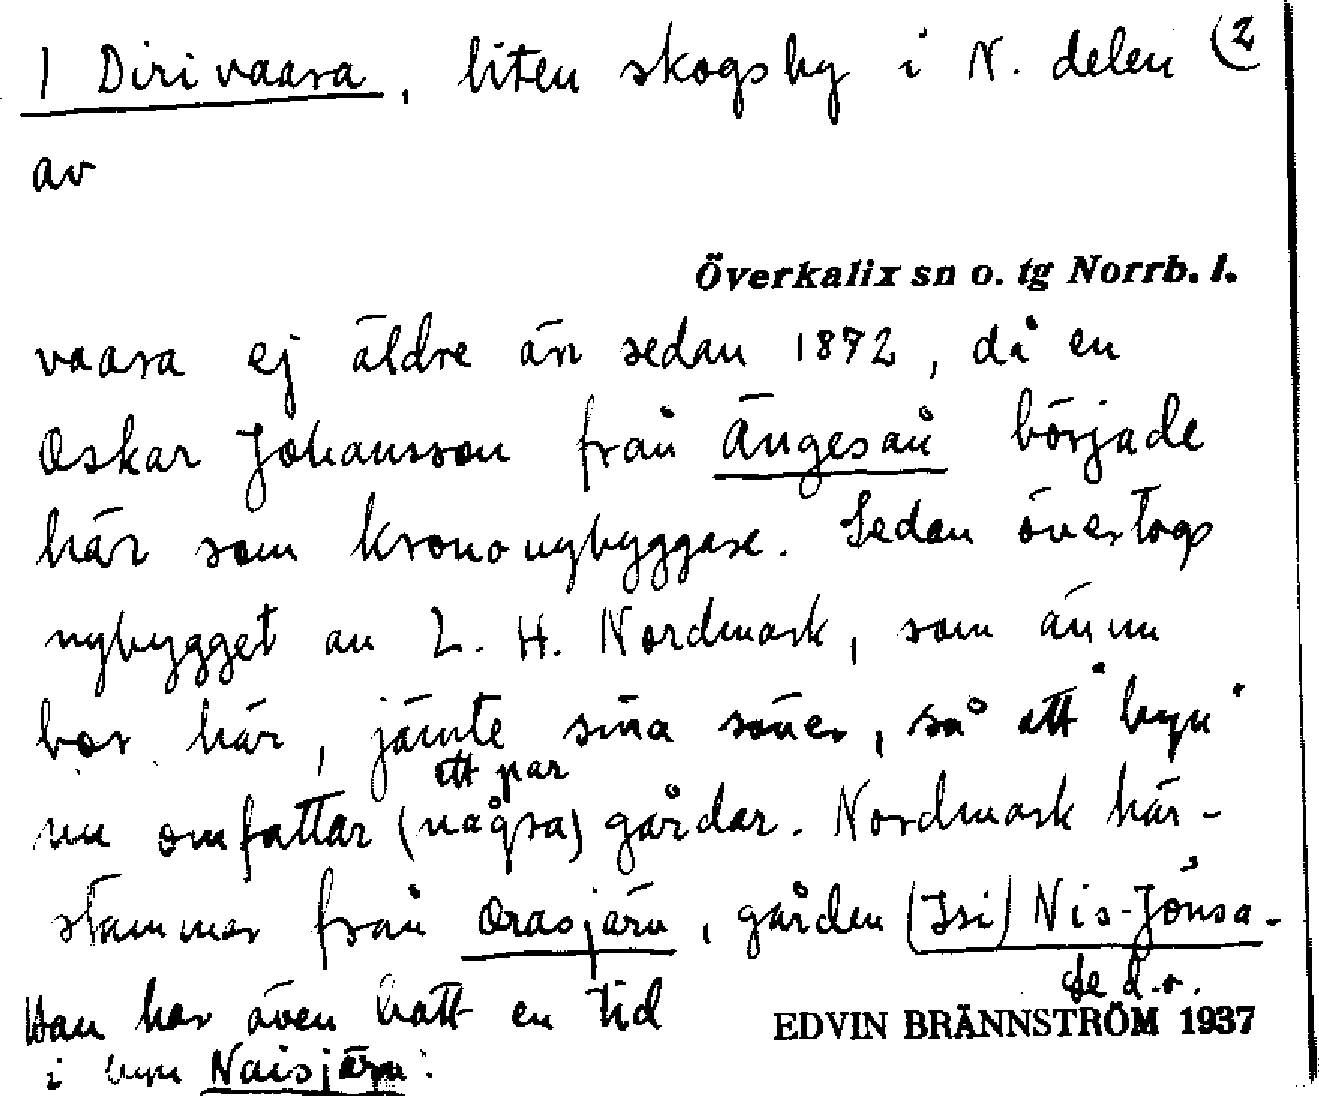 1 Dirivaara, liten skogsby i N. delen (2
av
Överkalix sn o. tg Norrb. l.
vaara ej äldre än sedan 1872, då en
Oskar Johansson från Ängesån började
här som krononybyggare. Sedan övertogs
nybygget av L. H. Nordmark, som ännu
bor här, jämte sina söner, så att byn
ett par
nu omfattar (några) gårdar. Nordmark här-
stammar från Orasjärv, gården (Isi) Nis-Jönsa-
se d.o.
Han har även haft en tid
EDVIN BRÄNNSTRÖM 1937
i byn Naisjärv.